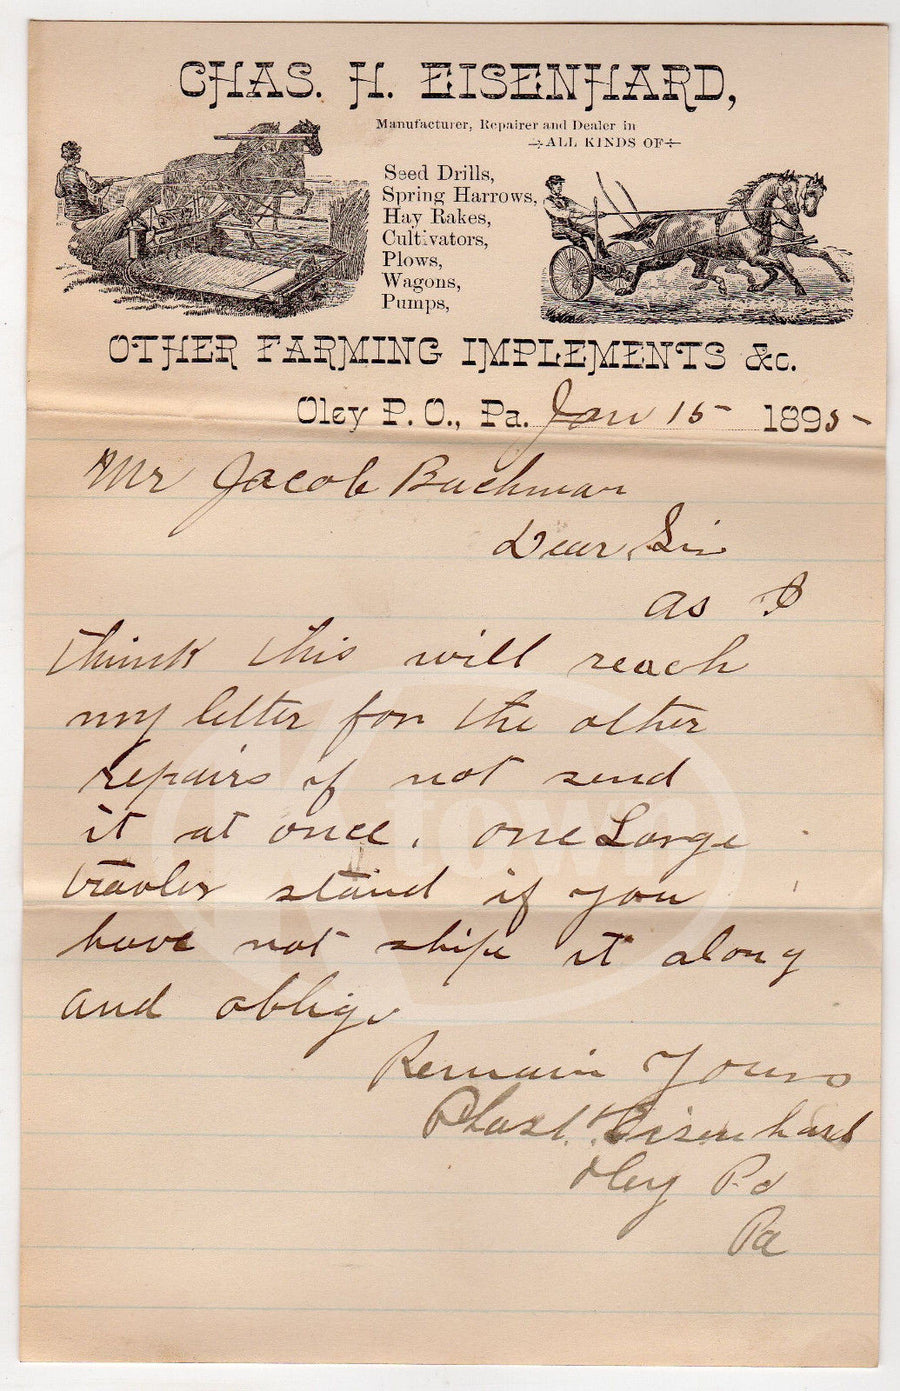 CHAS. H. EISENHARD,
Manufacturer, Repairer and Dealer in
ALL KINDS OF
Seed Drills,
Spring Harrows,
Hay Rakes,
Cultivators,
Plows,
Wagons,
Pumps,
OTHER FARMING IMPLEMENTS &c.
Oley P. O., Pa. Jan 15 1895
Mr Jacob Bachman
Dear Sir
as I
think this will reach
my letter for the other
repairs if not send
it at once. one Large
stand if you
have not ship it along
and oblige
Remain Yours
Chas. H. Eisenhard
Oley P.O
Pa
Ktown